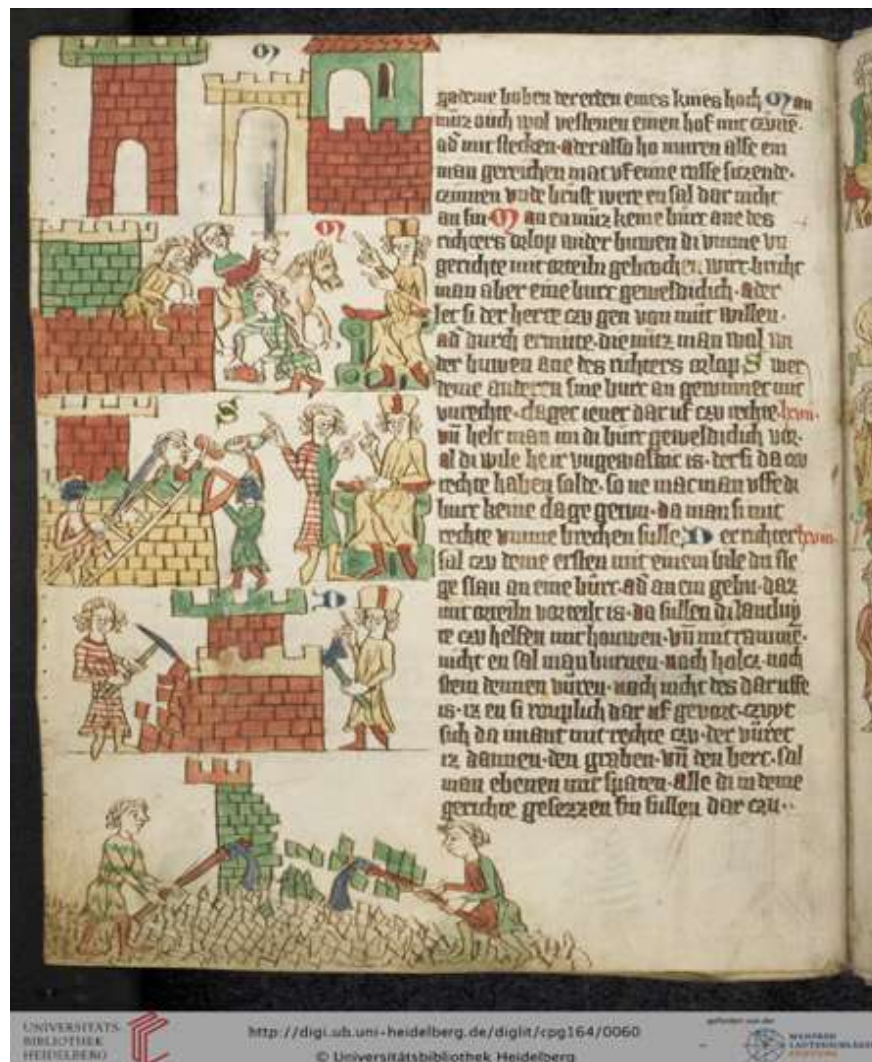 M
M
S
D
gademe boben der erden eines knies hoch Man
muz ouch wol vestenen einen hof mit czune
ad mit stecken ader also ho muren alse ein
man gereichen mac uf eime rosse siczende
czinnen vnde brust were en sal dar nicht
an sin Man en muz keine burc ane des
richters orlop wider buwen di vmme vn
gerichte mit orteiln gebrochen wirt bricht
man aber eine burc geweldiclich ader
let si der herre czu gen von mut willen
ad durch ermute die muz man wol wi
der buwen ane des richters orlop Swer
deme anderen sine burc an gewinnet mit
vnrechte claget iener dar uf czu rechte lxvii
vn helt man im di burc geweldiclich vor
al di wile he ir vngewaldic is der si da czu
rechte haben solde so ne mac man vffe di
burc keine clage getun da man si mit
rechte vmme brechen sulle Der richter lxviii
sal czu deme ersten mit einem bile dri sle
ge slan an eine burc ad an ein gebu daz
mit orteiln vorteilt is da sullen di lantluy
te czu helfen mit houwen vn mit rammen
nicht en sal man burnen noch holcz noch
stein dennen vuren noch nicht des dar uffe
is iz en si rouplich dar uf gevort czuyt
sich da imant mit rechte czu der vuret
iz dannen den graben vn den berc sal
man ebenen mit spaten alle di in deme
gerichte gesezzen sin sullen dar czu
UNIVERSITÄTS-
BIBLIOTHEK
HEIDELBERG
http://digi.ub.uni-heidelberg.de/diglit/cpg164/0060
© Universitätsbibliothek Heidelberg
gefördert von der
MANFRED
LAUTENSCHLÄGER
STIFTUNG